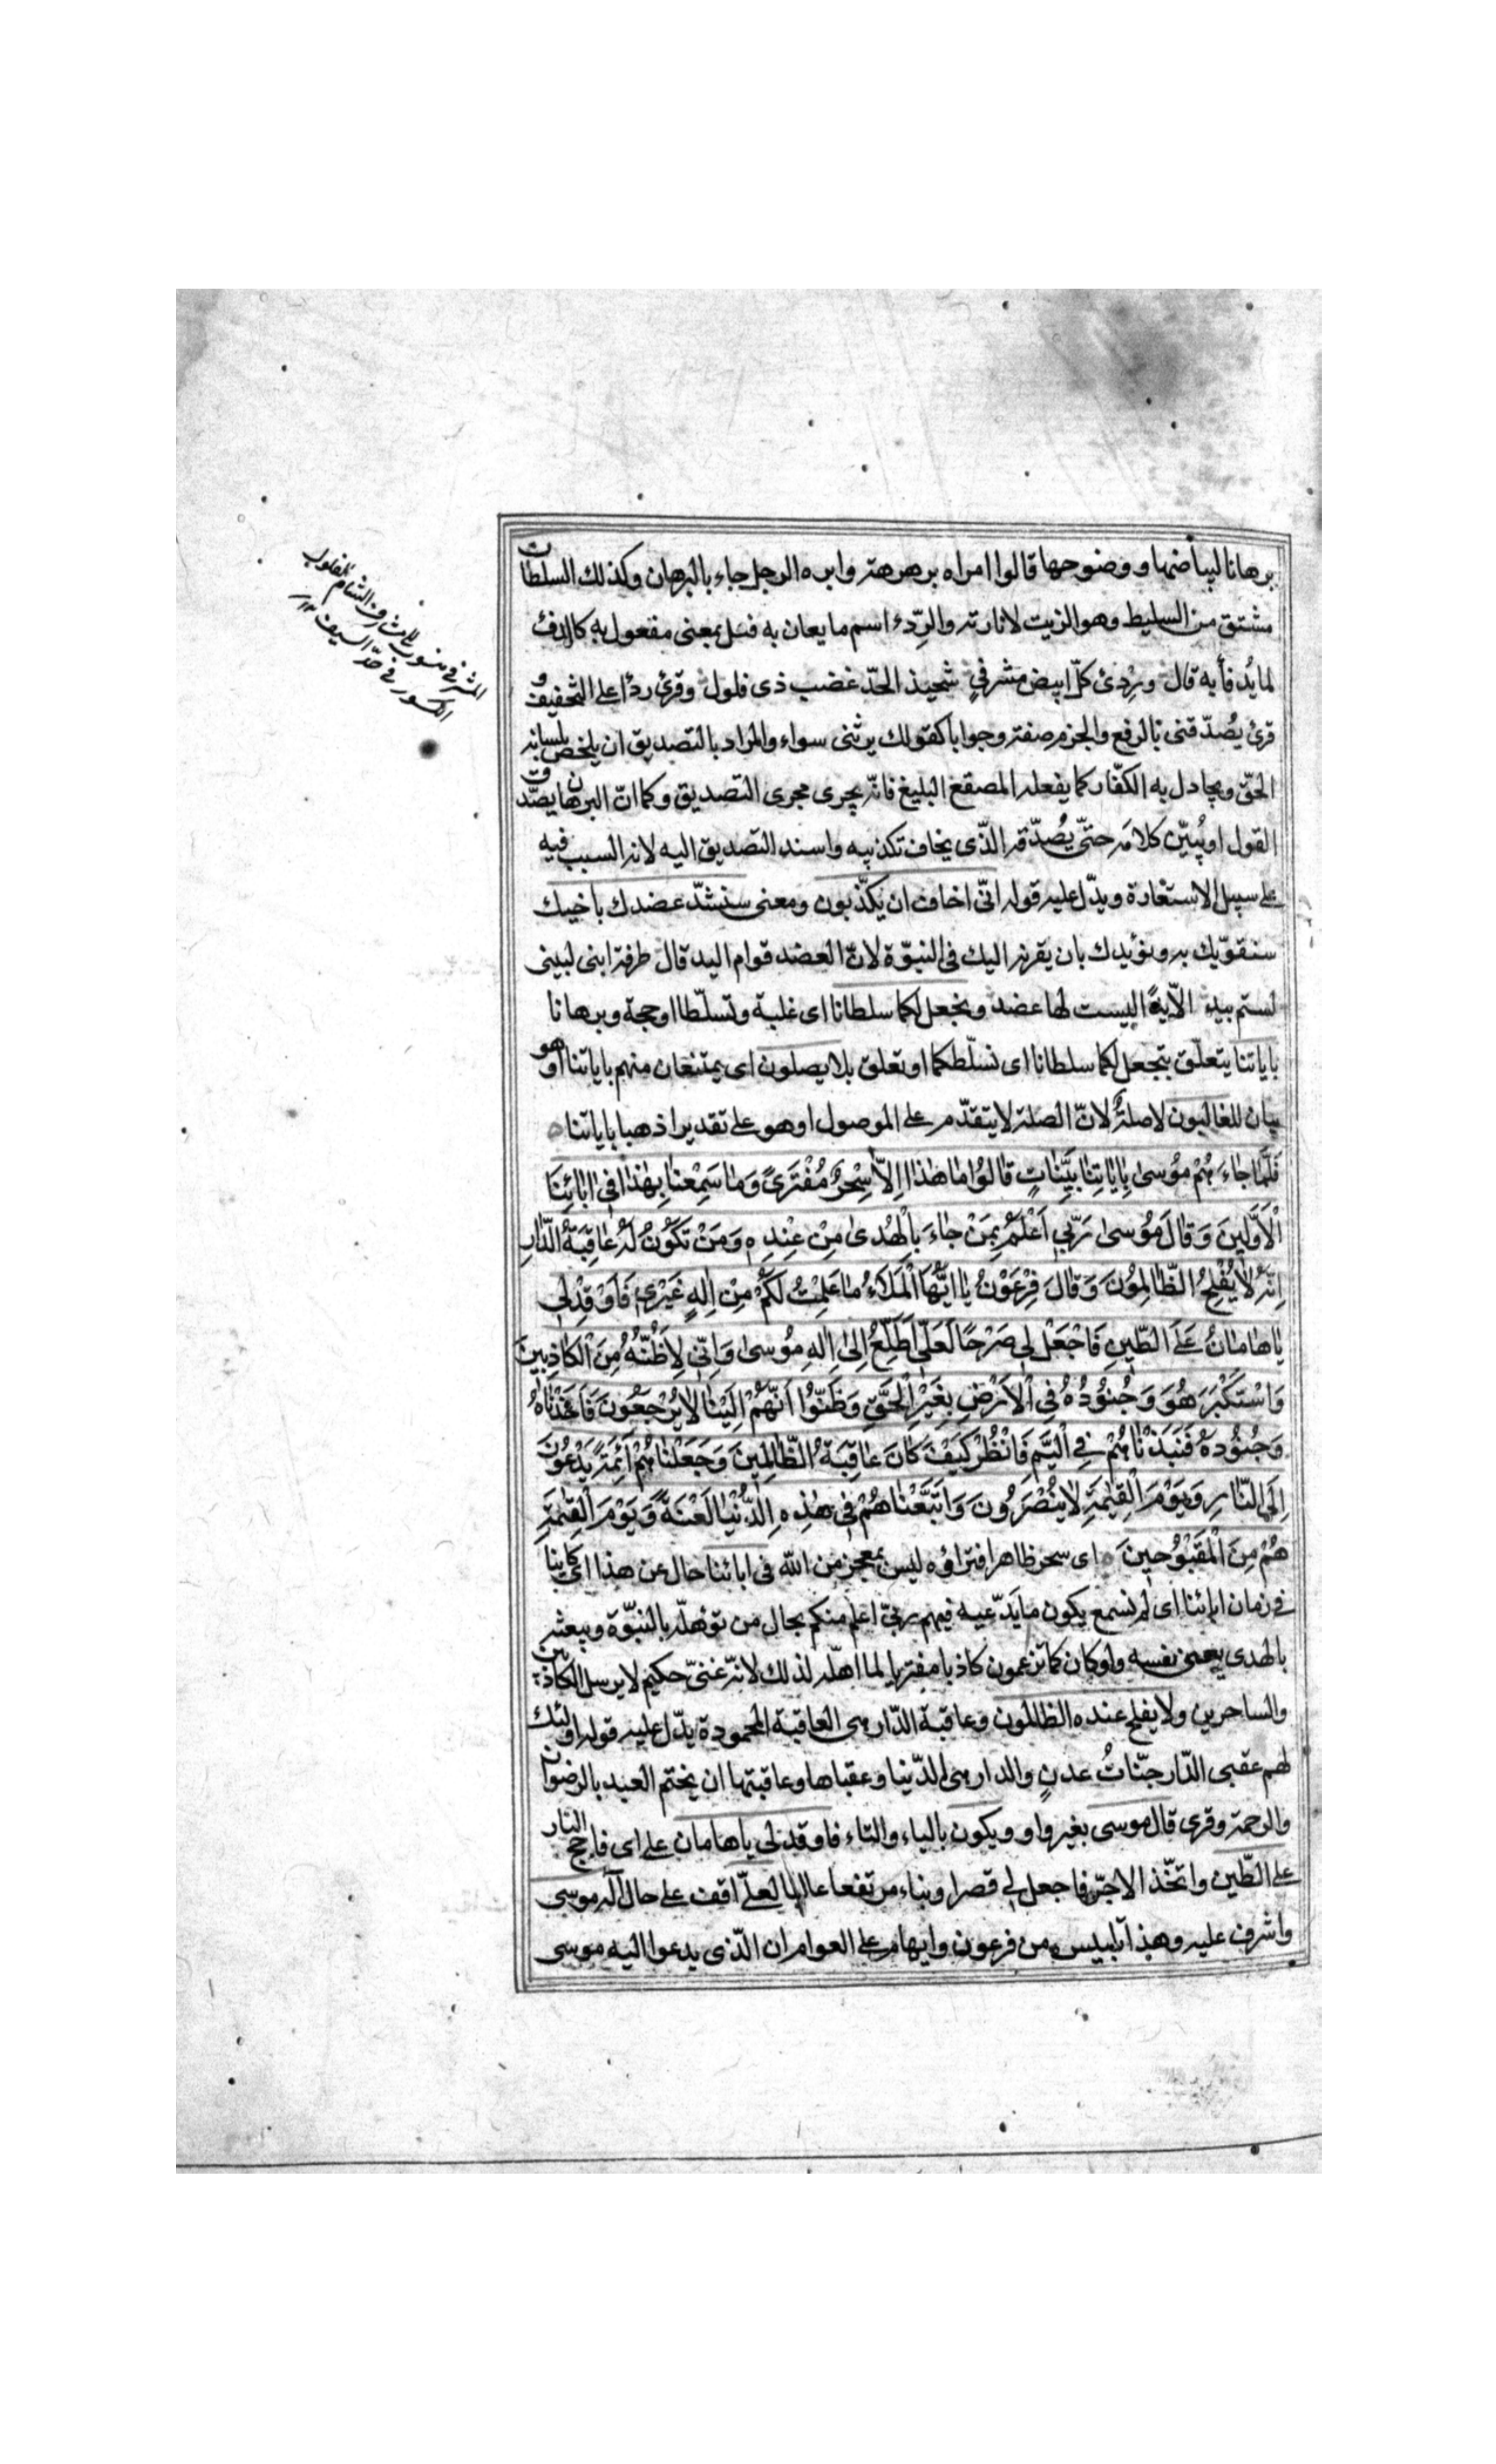 برهانا لبياضها ووضوحها قالوا امراه برهرهة وابره الرجل جاء بالبرهان وكذلك السلطان
مشتق من السليط وهو الزيت لانارته والرِّدء اسم ما يعان به فعل بمعنى مفعول به كالدفئ
لما يُدفأ به قال ورِدئ كلّ ابيض مشرفي شحيذ الحدّ غضب ذى فلول وقرئ ردًا على التخفيف و
قرئ يُصدّقنى بالرفع والجزم صفة وجوابا كقولك يرثنى سواء والمراد بالتصديق ان يلخص بلسانه
الحقّ ويجادل به الكفّار كما يفعله المصقع البليغ فانّه يجرى مجرى التصديق وكما انّ البرهان يصدّق
القول او يُبيّن كلامه حتّى يُصدّقه الذّى يخاف تكذيبه واسند التصديق اليه لانه السبب فيه
على سبيل الاستعارة ويدّل عليه قوله انّى اخاف ان يكذّبون ومعنى سنشدّ عضدك باخيك
سنقوّيك به ونؤيدك بان يقرنه اليك فى النبوّة لانّ العضد قوام اليد قال طرفة ابنى لبينى
لستم بيد الاّ يدًا ليست لها عضد ونجعل لكما سلطانا اى غلبة وتسلّطا او حجة وبرهانا
باياتنا يتعلّق بنجعل لكما سلطانا اى نسلّطكما او تعلق بلا يصلون اى يمتنعان منهم باياتنا او هو
بيان للغالبون لا صلةٌ لانّ الصلة لا يتقدّم على الموصول او هو على تقدير اذهبا باياتنا
فَلَمَّا جَاءَهُمْ مُوسىٰ بِاٰيَاتِنَا بَيِّنَاتٍ قَالُوا مَا هٰذَا اِلاّٰ سِحْرٌ مُفْتَرىً وَمَا سَمِعْنَا بِهٰذَا فِى اٰبَائِنَا
اْلاَوَّلِينَ وَقَالَ مُوسىٰ رَبّى اَعْلَمُ بِمَنْ جَاءَ بِالْهُدىٰ مِنْ عِنْدِه وَمَنْ تَكُونُ لَهُ عَاقِبَةُ الدّارِ
اِنَّهُ لاَ يُفْلِحُ الظّالِمُونَ وَقَالَ فِرْعَوْنُ يَا اَيُّهَا الْمَلَاءُ مَا عَلِمْتُ لَكُمْ مِنْ اِلٰهٍ غَيْرِى فَاَوْقِدْ لِى
يَا هَامَانُ عَلَى الطّينِ فَاجْعَلْ لِى صَرْحًا لَعَلّى اَطَّلِعُ اِلىٰ اِلٰهِ مُوسىٰ وَاِنّى لَاَظُنُّهُ مِنَ الْكَاذِبِينَ
وَاسْتَكْبَرَ هُوَ وَجُنُودُهُ فِى اْلاَرْضِ بِغَيْرِ الْحَقِّ وَظَنُّوا اَنَّهُمْ اِلَيْنَا لاَ يُرْجَعُونَ فَاَخَذْنَاهُ
وَجُنُودَهُ فَنَبَذْنَاهُمْ فِى الْيَمِّ فَانْظُرْ كَيْفَ كَانَ عَاقِبَةُ الظّالِمِينَ وَجَعَلْنَاهُمْ اَئِمَّةً يَدْعُونَ
اِلَى النّارِ وَيَوْمَ الْقِيٰمَةِ لاَ يُنْصَرُونَ وَاَتْبَعْنَاهُمْ فِى هٰذِهِ الدُّنْيَا لَعْنَةً وَيَوْمَ الْقِيٰمَةِ
هُمْ مِنَ الْمَقْبُوحِينَ اى سحر ظاهر افتراؤه ليس بمعجز من الله فى ابائنا حال عن هذا اى كاينا
فى زمان ابائنا اى لم نسمع بكون ما يَدّعيه فيهم ربىّ اعلم منكم بحال من تؤهلّه بالنبوّة ويبعثه
بالهدى يعنى نفسه ولو كان كما تزعمون كاذبا مفتريا لما اهلّه لذلك لانّه غنىّ حكيم لا يرسل الكاذبين
والساحرين ولا يفلح عنده الظالمون وعاقبة الدّار هى العاقبة المحمودة يدّل عليه قوله اولئك
لهم عقبى الدّار جنّاتُ عدنٍ والدار هى الدّنيا وعقباها وعاقبتها ان يختم العبد بالرضوان
والرحمة وقرى قال موسى بغير واو ويكون بالياء والتاء فاوقد لى يا هامان على اى فاجج النار
على الطّين واتّخذ الاجرّ فاجعل لى قصرا وبناء مرتفعا عاليا لعلّى اقف على حال اله موسى
واشرف عليه وهذا تلبيس من فرعون وايهام على العوام ان الذّى يدعوا اليه موسى
المشرفى منسوب الى مشارف الشام الفلول
الكسور فى حدّ السيف ١٢